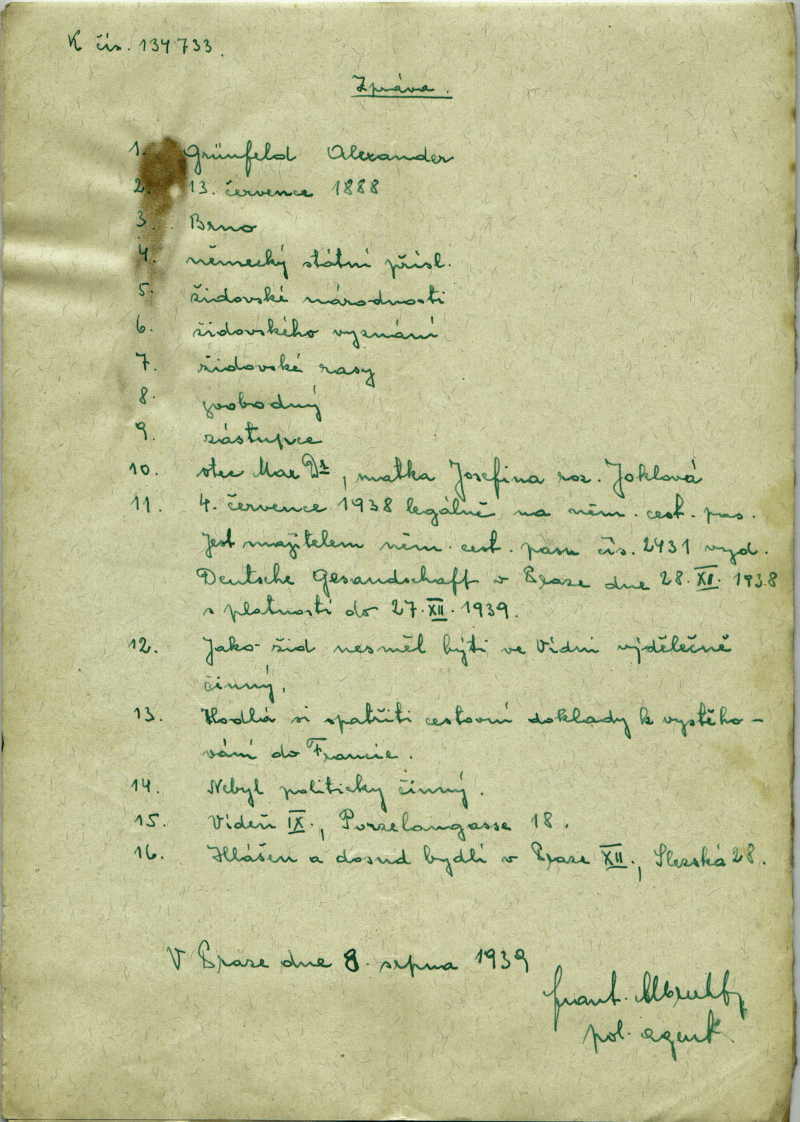 K čís. 134733.
Zpráva.
1. Grünfeld Alexander
2. 13. července 1888
3. Brno
4. německý státní přísl.
5. židovské národnosti
6. židovského vyznání
7. židovské rasy
8. svobodný
9. zástupce
10. otec Max Dr, matka Josefina roz. Joklová
11. 4. července 1938 legálně na něm. cest. pas.
Jest majitelem něm. cest. pasu čís. 2431 vyd.
Deutsche Gesandschaft v Praze dne 28. XII. 1938
s platností do 27. XII. 1939.
12. Jako žid nesměl býti ve Vídni výdělečně
činný.
13. Hodlá si opatřiti cestovní doklady k vystěho-
vání do Francie.
14. Nebyl politicky činný.
15. Vídeň IX., Porzelangasse 18.
16. Hlášen a dosud bydlí v Praze XII., Slezská 28.
V Praze dne 8. srpna 1939
frant.
pol. agent